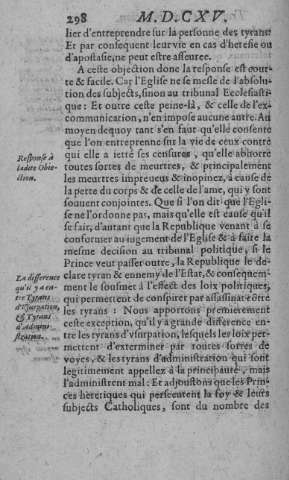 298 M.D.CXV.
lier d'entreprendre sur la personne des tyrans
Et par consequent leur vie en cas d'heresie ou
d'apostasie, ne peut estre asseuree.
A ceste objection donc la response est cour-
te & facile. Car l'Eglise ne se mesle de l'absolu-
tion des subjects, sinon au tribunal Ecclesiasti-
que: Et outre ceste peine-là, & celle de l'ex-
communication, n'en impose aucune autre. Au
moyen dequoy tant s'en faut qu'elle consente
que l'on entreprenne sur la vie de ceux contre
qui elle a ietté ses censures, qu'elle abhorre
toutes sortes de meurtres, & principalement
les meurtres impreueus & inopinez, à cause de
la perte du corps & de celle de l'ame, qui y sont
souuent conjointes. Que si l'on dit que l'Egli-
se ne l'ordonne pas, mais qu'elle est cause qu'il
se fait, d'autant que la Republique venant à se
conformer au iugement de l'Eglise & à faire la
mesme decision au tribunal politique, si le
Prince veut passer outre, la Republique le de-
clare tyran & ennemy de l'Estat, & consequem-
ment le sousmet à l'effect des loix politiques,
qui permettent de conspirer par assassinat côtre
les tyrans: Nous apportons premierement
ceste exception, qu'il y a grande difference en-
tre les tyrans d'vsurpation, lesquels les loix per-
mettent d'exterminer par toutes sortes de
voyes, & les tyrans d'administration qui sont
legitimement appellez à la principauté, mais
l'administrent mal: Et adjoustons que les Prin-
ces heretiques qui persecutent la foy & leurs
subjects Catholiques, sont du nombre des
Response à
ladete Obie-
ction.
La difference
qu'il y a en-
tre Tyrans
d'Vsurpation,
& Tyrans
d'Admini-
stration.